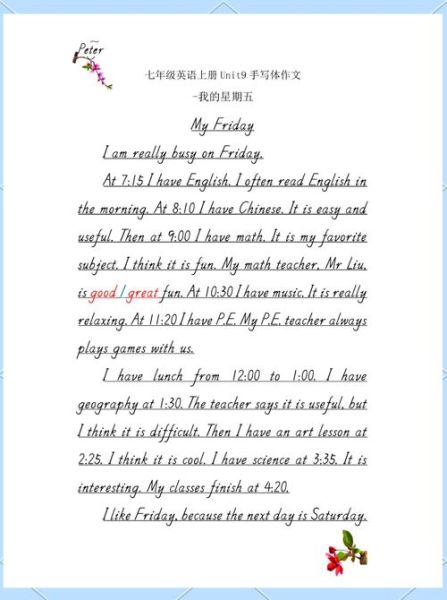 Peter
七年级英语上册 Unit9 手写体作文
-我的星期五
My Friday
I am really busy on Friday.
At 7:15 I have English. I often read English in
the morning. At 8:10 I have Chinese. It is easy and
useful. Then at 9:00 I have math. It is my favorite
subject. I think it is fun. My math teacher, Mr Liu,
is good / great fun. At 10:30 I have music. It is really
relaxing. At 11:20 I have P.E. My P.E. teacher always
plays games with us.
I have lunch from 12:00 to 1:00. I have
geography at 1:30. The teacher says it is useful, but
I think it is difficult. Then I have an art lesson at
2:25. I think it is cool. I have science at 3:35. It is
interesting. My classes finish at 4:20.
I like Friday, because the next day is Saturday.